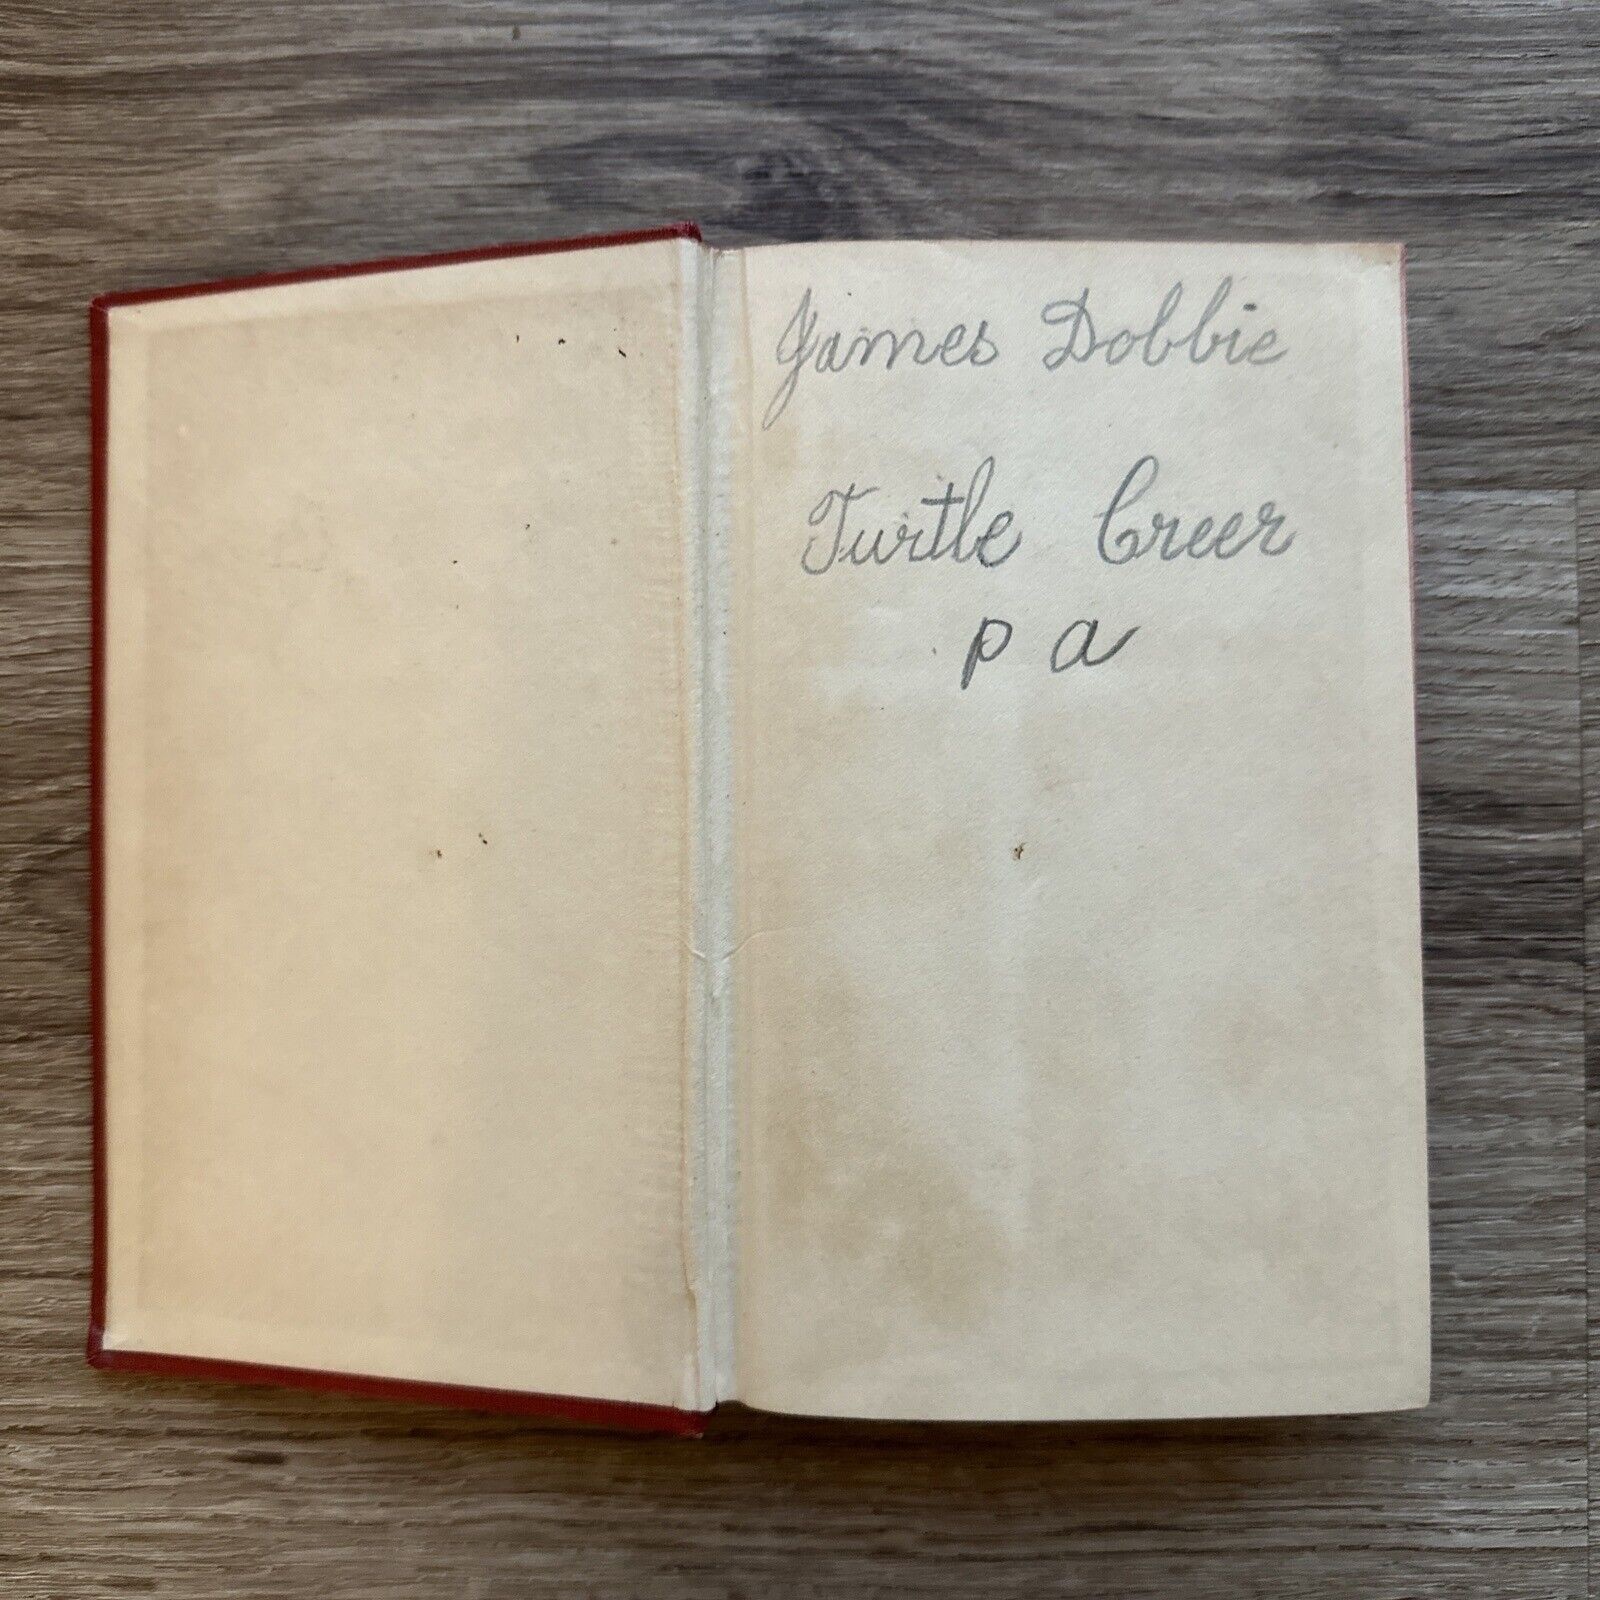 James Dobbie
Turtle Creer
p a